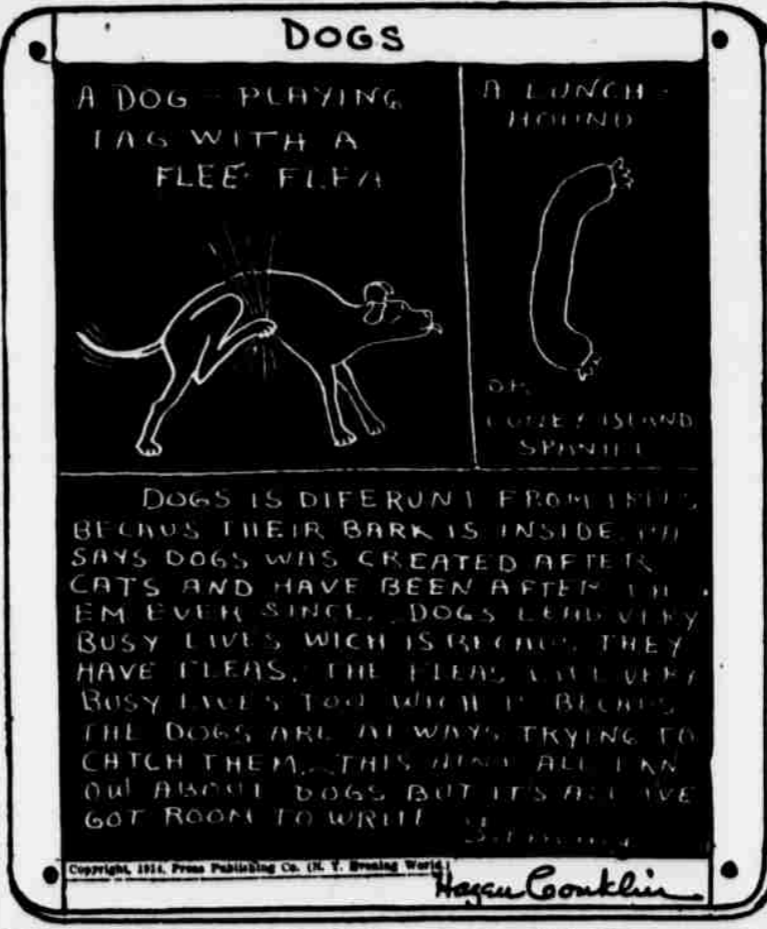 DOGS
A DOG - PLAYING
TAG WITH A
FLEE FLEA
A LUNCH-
HOUND
OR
CONEY ISLAND
SPANIEL
DOGS IS DIFERUNT FROM TREES
BECAUS THEIR BARK IS INSIDE. PA
SAYS DOGS WAS CREATED AFTER
CATS AND HAVE BEEN AFTER TH
EM EVER SINCE. DOGS LEAD VERY
BUSY LIVES WICH IS BECAUS THEY
HAVE FLEAS. THE FLEAS VERY
BUSY LIVES TOO WICH IS BECAUS
THE DOGS ARE ALWAYS TRYING TO
CATCH THEM. THIS AINT ALL I KN
OW ABOUT DOGS BUT ITS ALL IVE
GOT ROOM TO WRITE
Copyright, 1914, Press Publishing Co. (N. Y. Evening World.)
Hazen Conklin